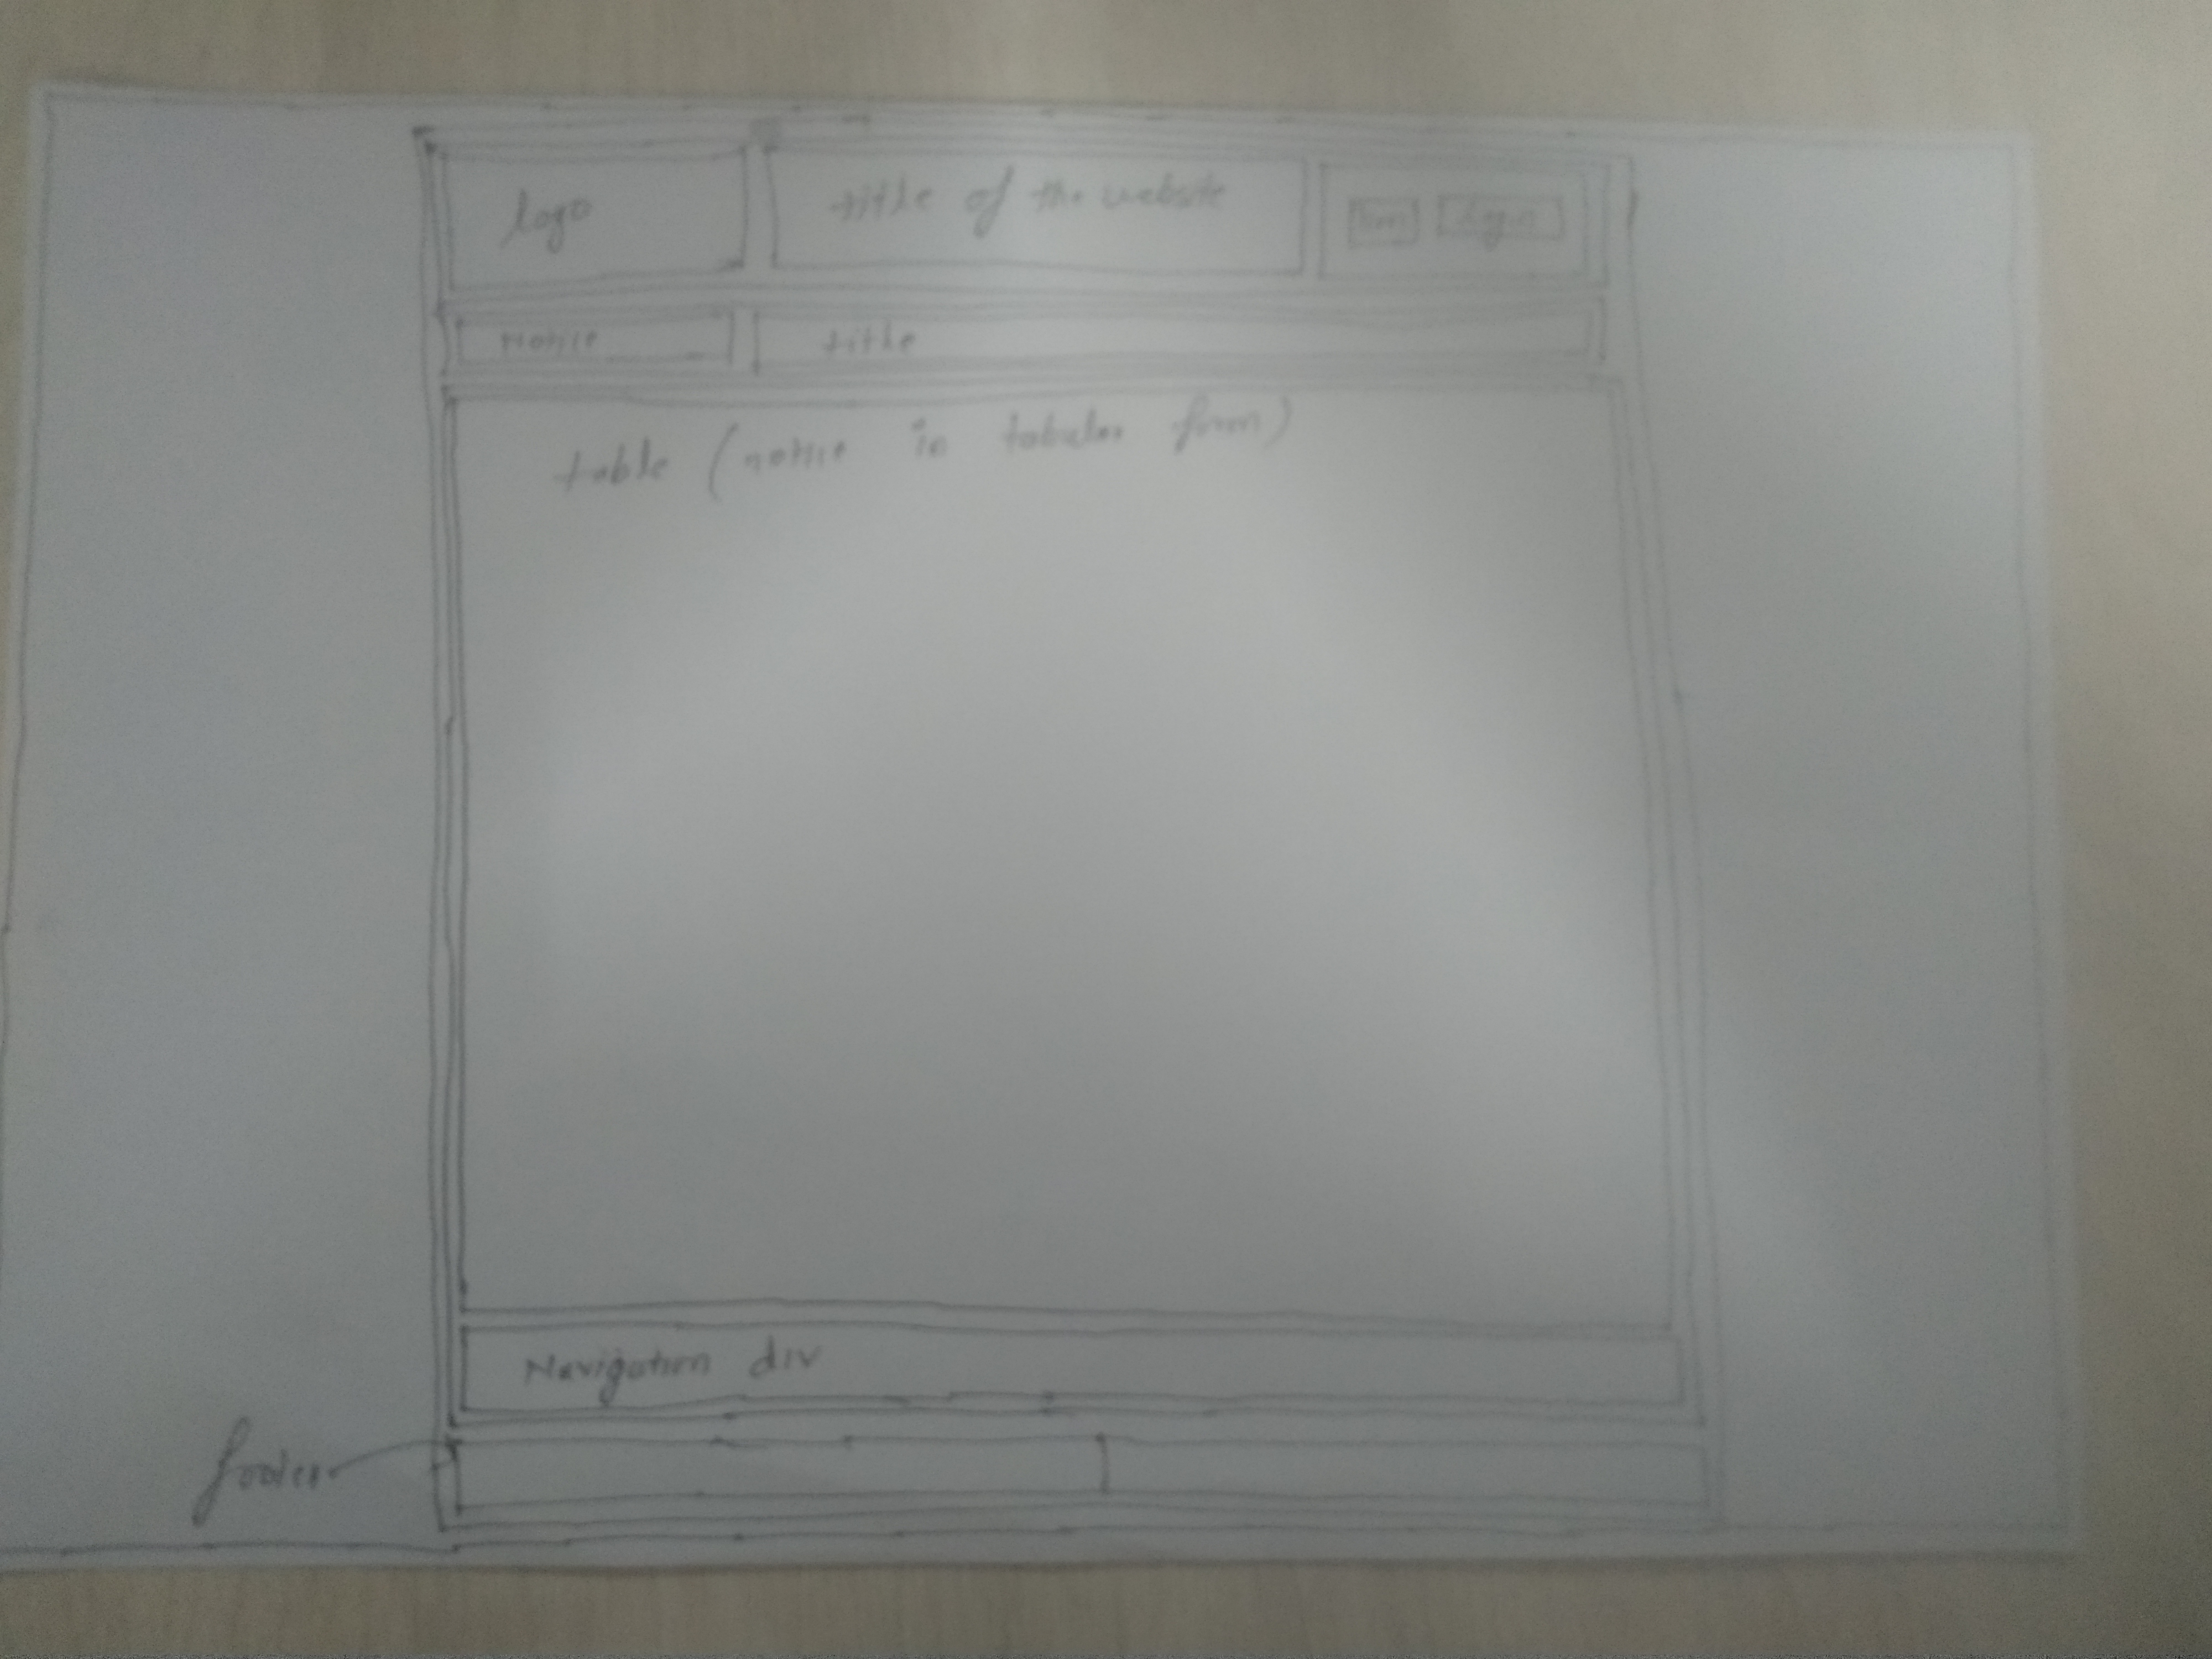 logo
title of the website
Login
Notice
title
table (notice in tabular form)
Navigation div
footer